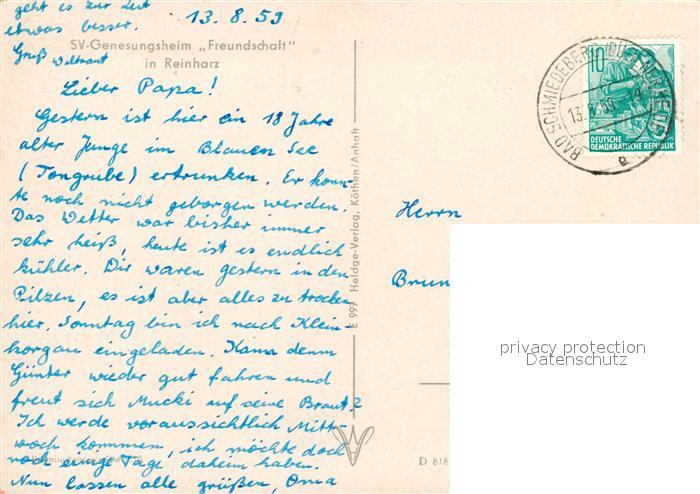 13. 8. 59
SV-Genesungsheim „Freundschaft"
in Reinharz
Lieber Papa!
Gestern ist hier ein 18 Jahre
alter Junge im Blauen See
(Tongrube) ertrunken. Er konn-
te noch nicht geborgen werden.
Das Wetter war bisher immer
sehr heiß, heute ist es endlich
kühler. Wir waren gestern in den
Pilzen, es ist aber alles zu trocken
hier. Sonntag bin ich nach Klein-
korgau eingeladen. Kann denn
Günter wieder gut fahren und
freut sich Mucki auf seine Braut?
Ich werde voraussichtlich Mitt-
woch kommen, ich möchte doch
noch einige Tage daheim haben.
Nun lassen alle grüßen, Oma
geht es zur Zeit
etwas besser.
Gruß Waltraut
E 997 Heldge-Verlag, Köthen/Anhalt
BAD SCHMIEDEBERG (DÜBENER HEIDE)
13.8.59
a
10
DEUTSCHE
DEMOKRATISCHE REPUBLIK
Herrn
Brun
privacy protection
Datenschutz
D 818